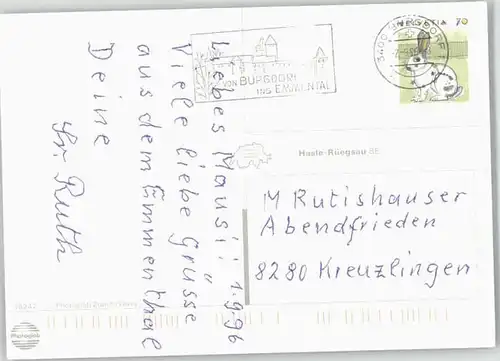 HELVETIA 70
3400 BURGDORF
VON BURGDORF
INS EMMENTAL
Hasle-Rüegsau BE
Liebes Mausi! 1.9.96
Viele liebe Grüsse
aus dem Emmenthal
Deine
Sr. Ruth
M Rutishauser
Abendfrieden
8280 Kreuzlingen
Photoglob